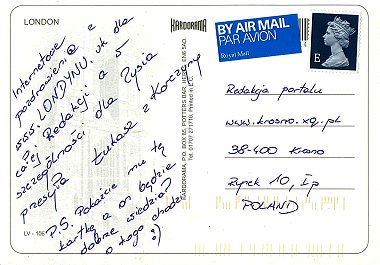 LONDON
Internetowe
pozdrowieni@ z
www.LONDYNU.uk dla
całej Redakcji a w
szczególności dla Zysia
przesyła Łukasz z Korczyny
P.S. Pokażcie mu tą
kartkę a on będzie
dobrze wiedział
o kogo chodzi
:)
LV - 106
KARDORAMA
KARDORAMA, P.O. BOX 85, POTTERS BAR, HERTS. EN6 5AD.
Tel. 01707 271710. Printed in E.C.
BY AIR MAIL
PAR AVION
Royal Mail
E
Redakcja portalu
www.krosno.xq.pl
38-400 Krosno
Rynek 10, Ip
POLAND